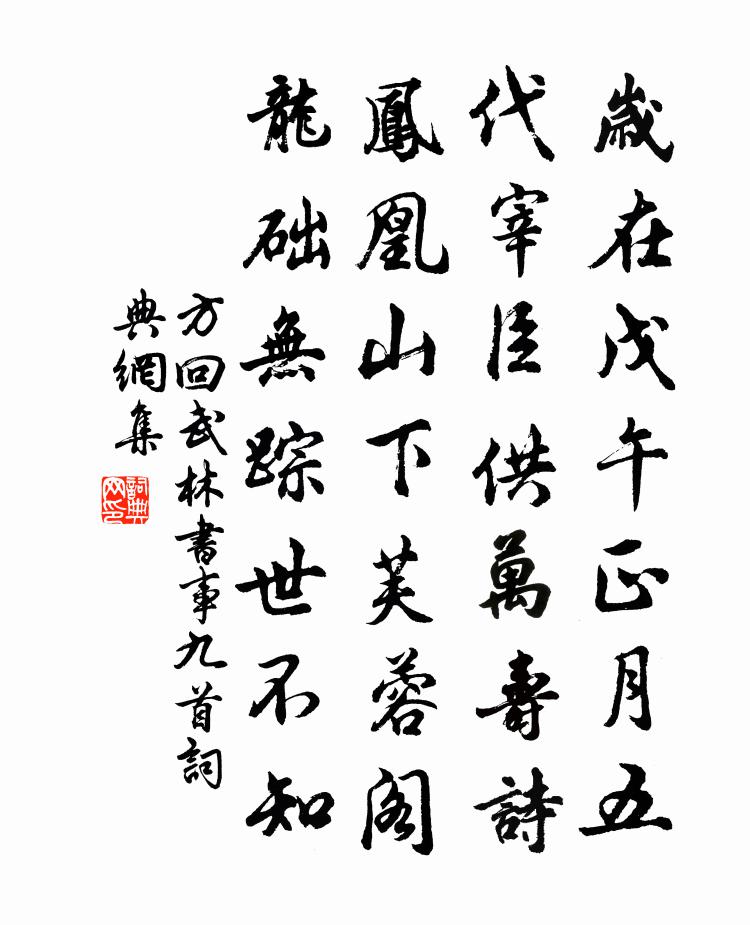 歲在戊午正月五
代宰臣供萬壽詩
鳳凰山下芙蓉閣
龍础無踪世不知
方回武林書事九首詞
典網集
詞典
网印